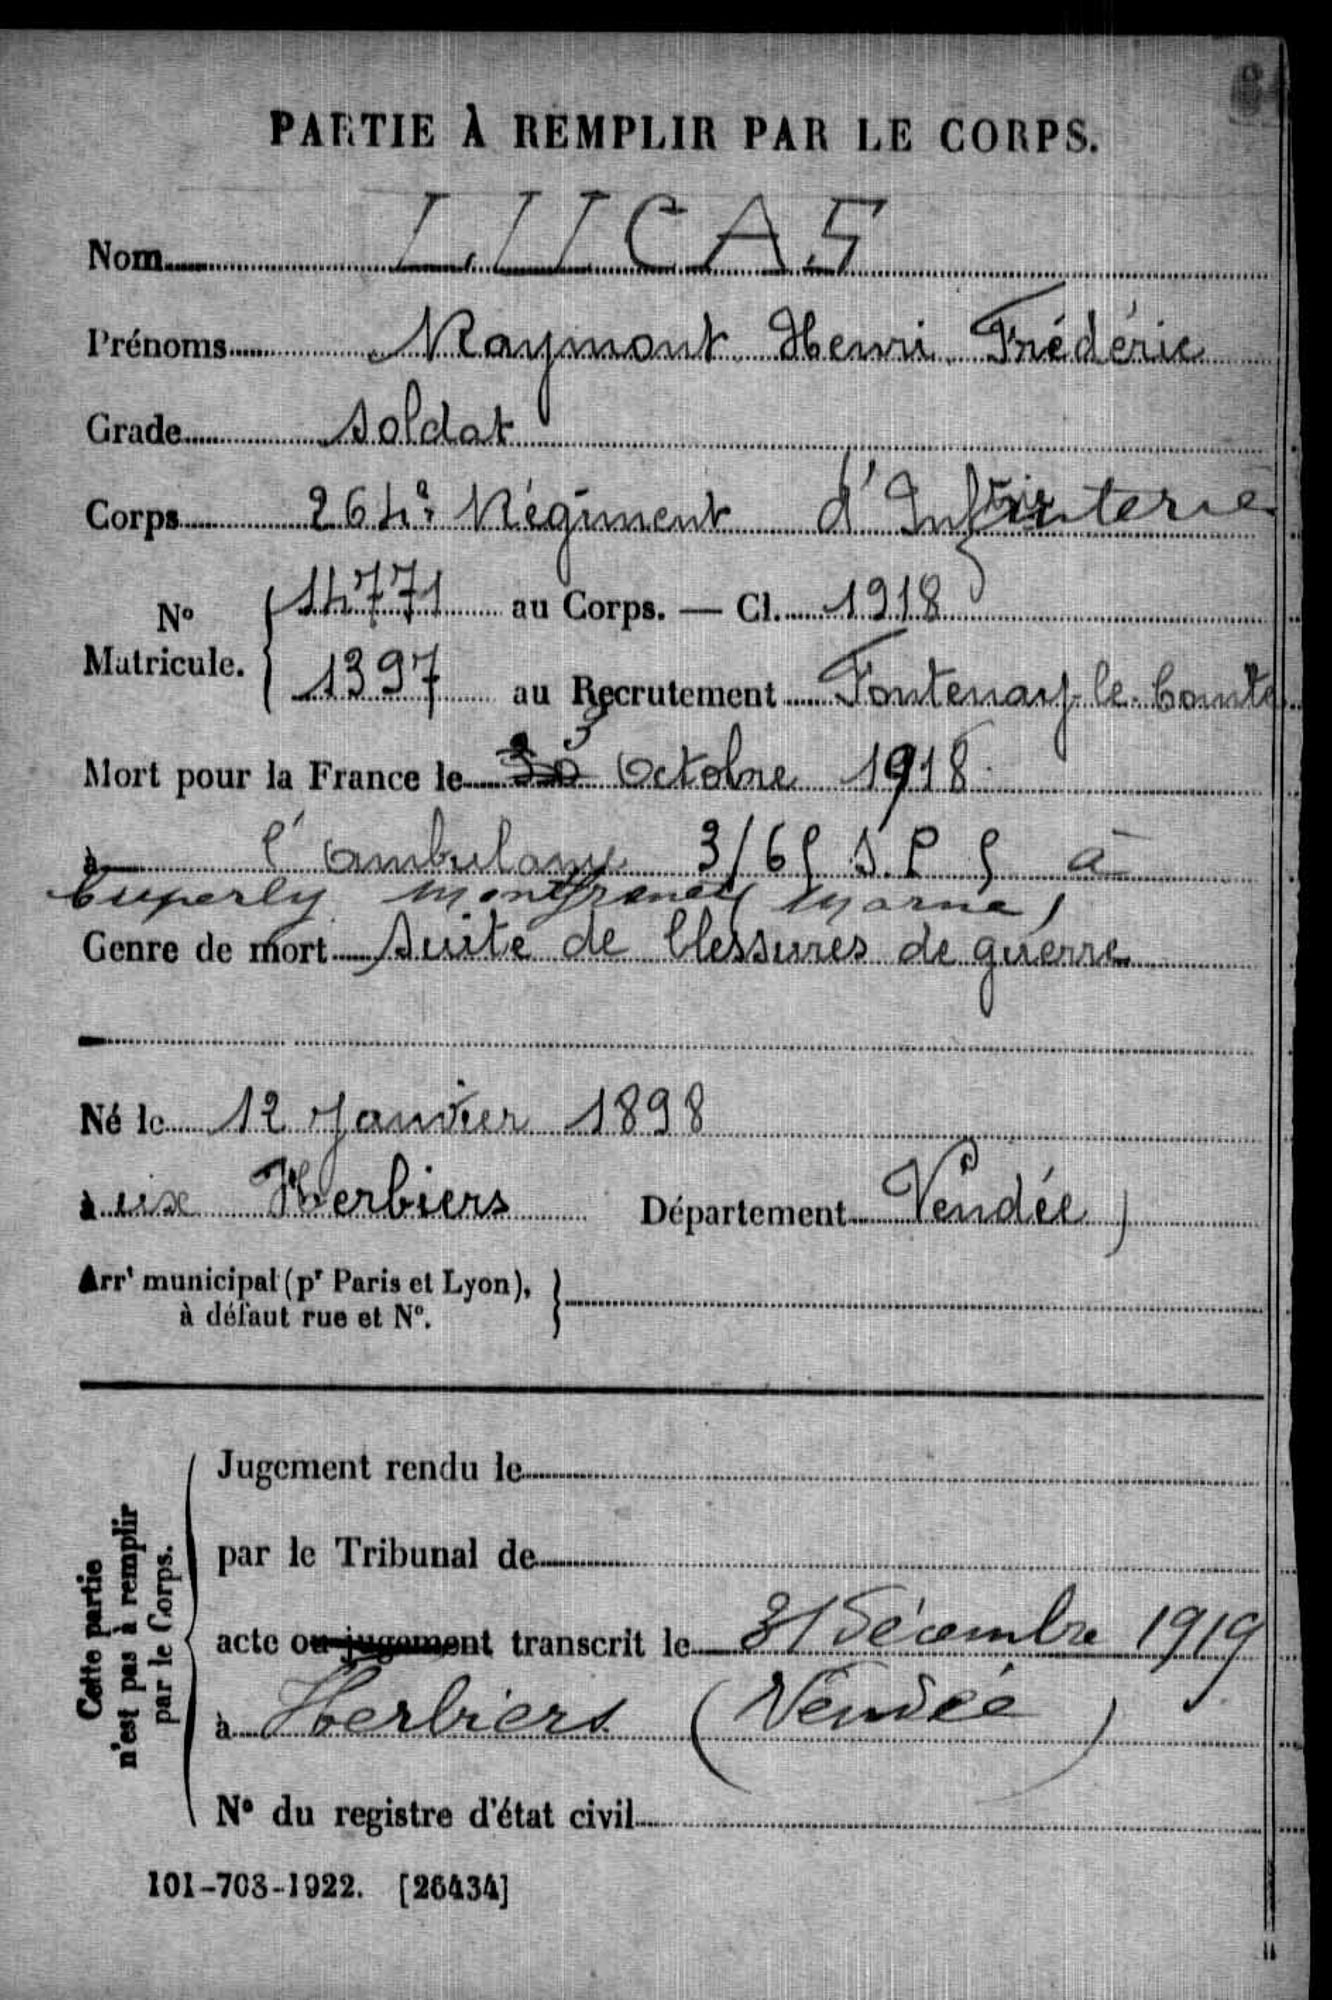 PARTIE À REMPLIR PAR LE CORPS.
Nom LUCAS
Prénoms Raymont Henri Frédéric
Grade Soldat
Corps 264e Régiment d'Infanterie
No Matricule. { 14771 au Corps. — Cl. 1918
1397 au Recrutement Fontenay-le-Comte
Mort pour la France le 3 Octobre 1918
à l'ambulance 3/65 S.P. à
Cuperly Montfrenet (Marne)
Genre de mort Suite de blessures de guerre
Né le 12 Janvier 1898
aux Herbiers Département Vendée)
Arrt municipal (pr Paris et Lyon),
à défaut rue et No. }
Cette partie
n'est pas à remplir
par le Corps.
Jugement rendu le
par le Tribunal de
acte ou jugement transcrit le 31 Décembre 1919
à Herbiers (Vendée)
No du registre d'état civil
101-708-1922. [26434]